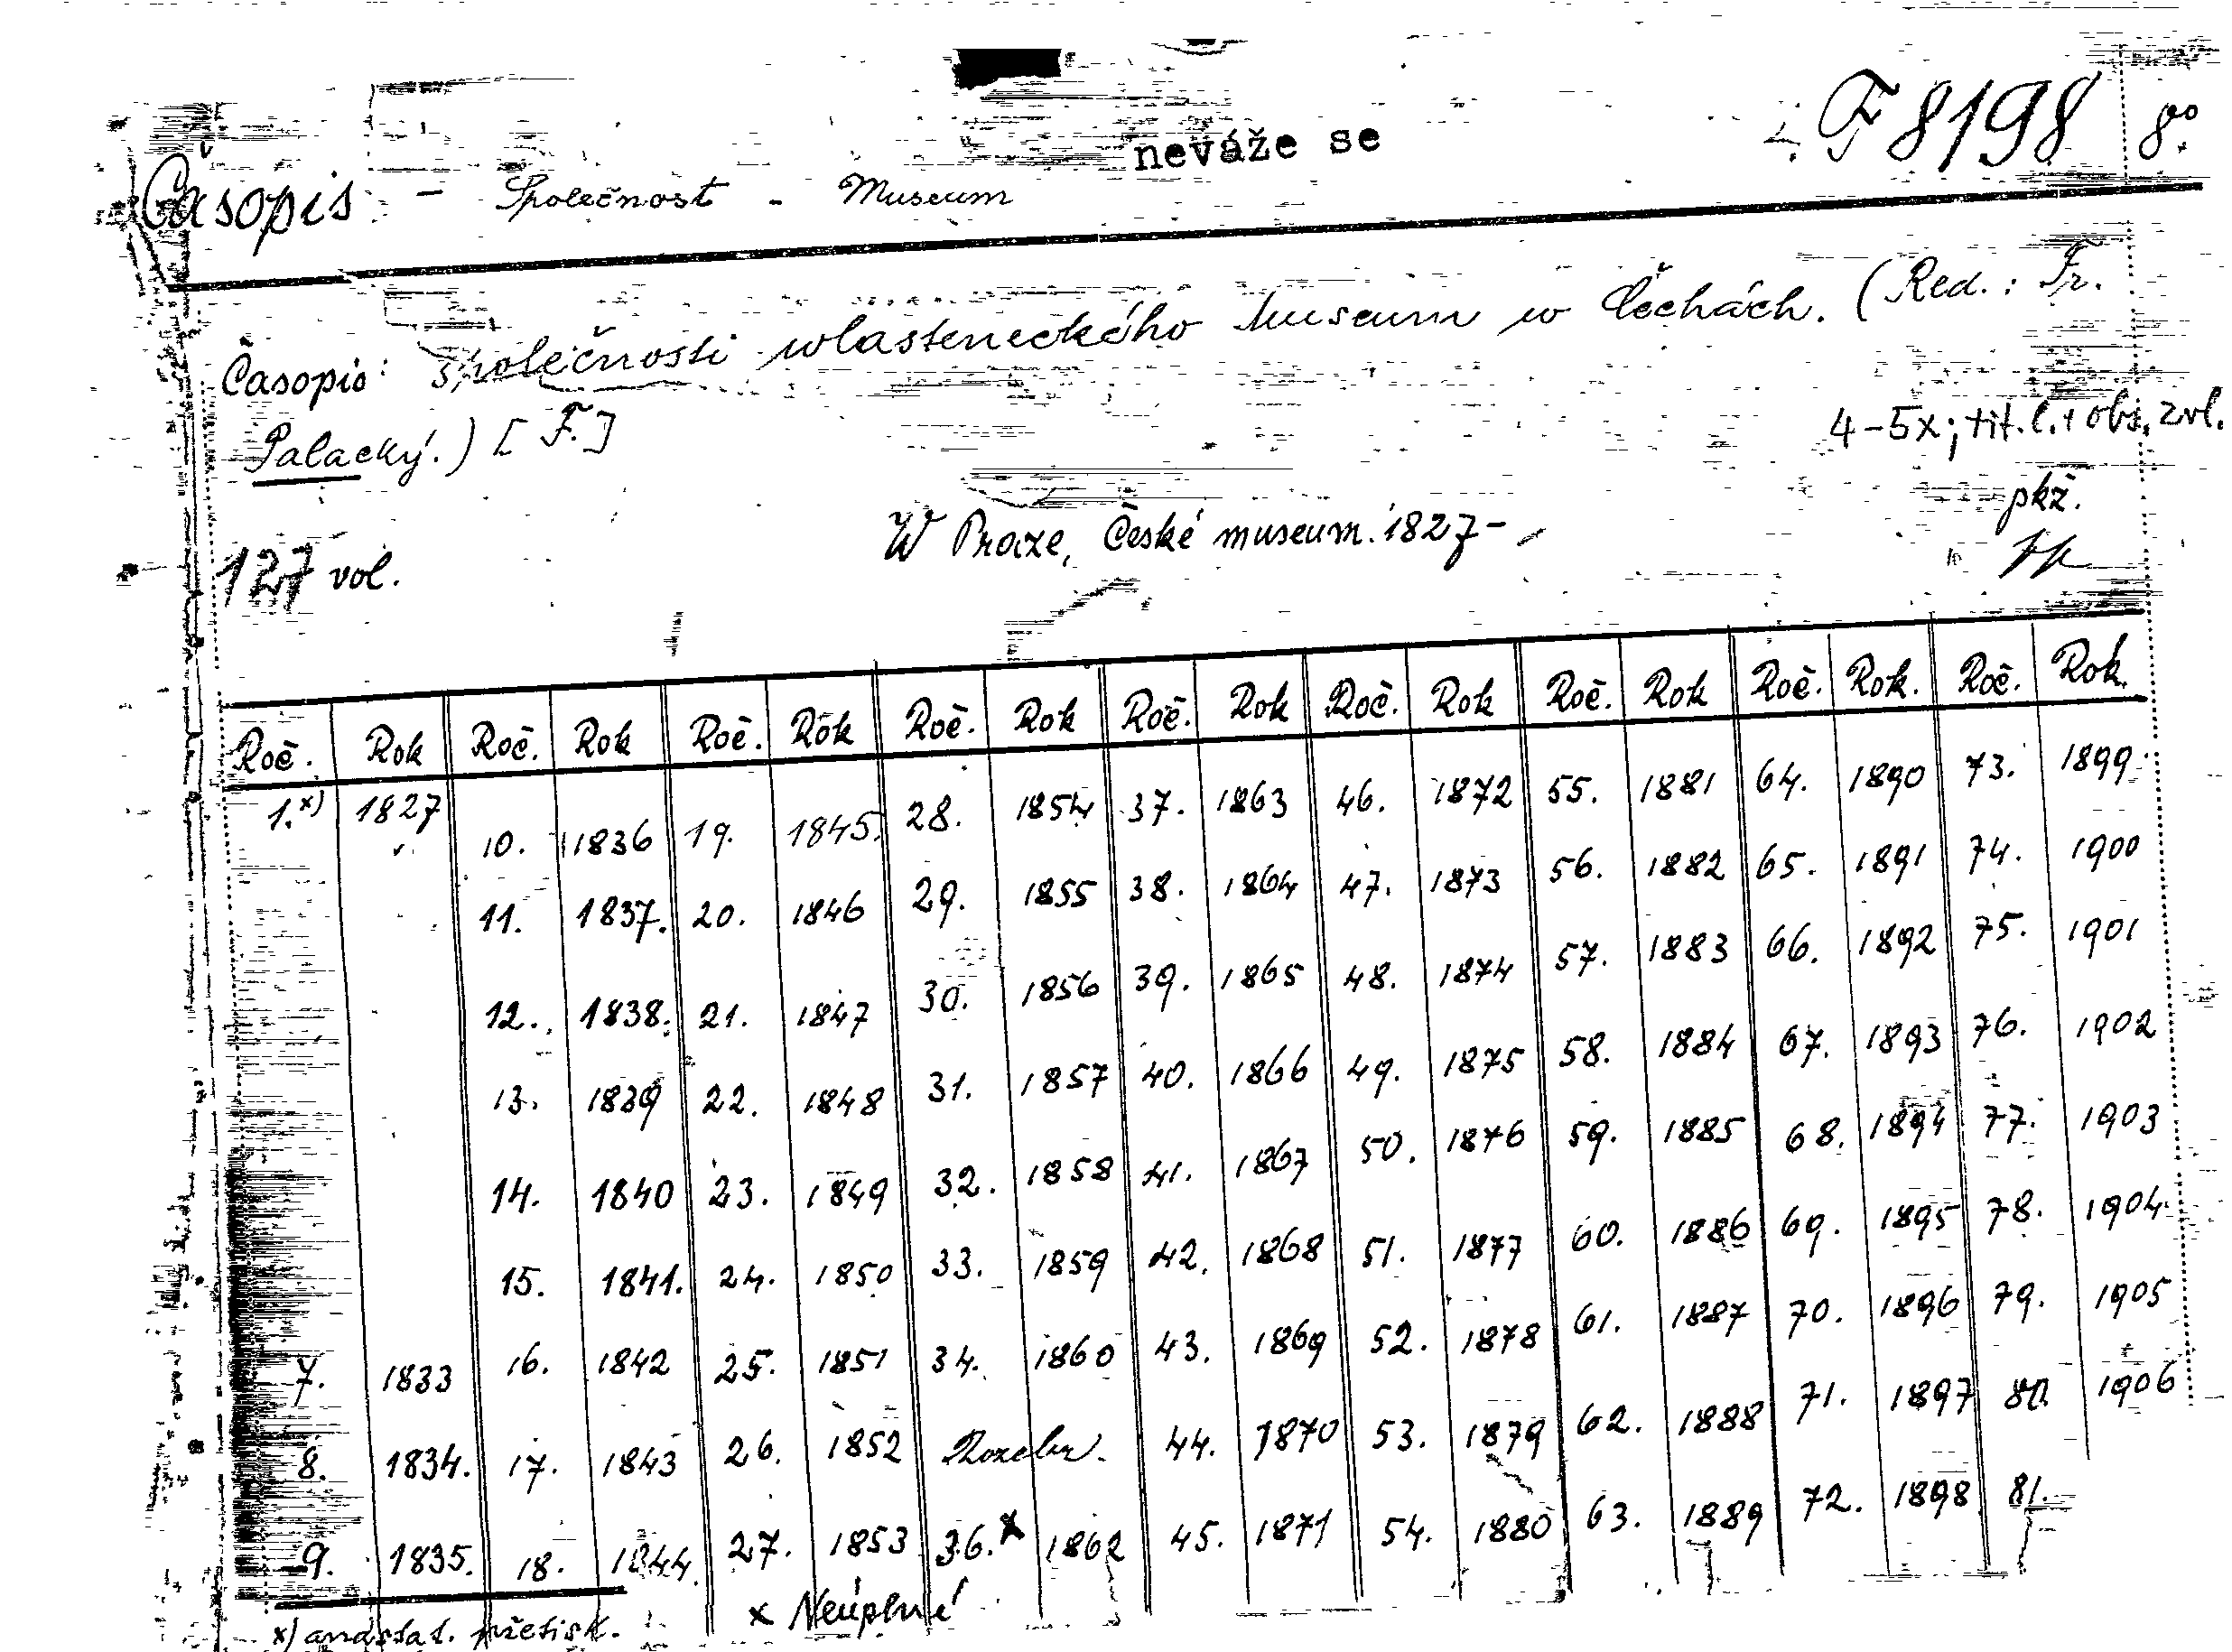 neváže se
F 8198 8°.
Časopis - Společnost - Museum
Časopis společnosti wlasteneckého Museum w Čechách. (Red.: Fr.
Palacký.) [F.]
4-5x; tit.l. + obs. zvl.
pkž.
W Praze, České museum. 1827-
127 vol.
Roč. Rok Roč. Rok Roč. Rok Roč. Rok Roč. Rok Roč. Rok Roč. Rok Roč. Rok. Roč. Rok.
1.x) 1827 10. 1836 19. 1845. 28. 1854 37. 1863 46. 1872 55. 1881 64. 1890 73. 1899
11. 1837. 20. 1846 29. 1855 38. 1864 47. 1873 56. 1882 65. 1891 74. 1900
12. 1838. 21. 1847 30. 1856 39. 1865 48. 1874 57. 1883 66. 1892 75. 1901
13. 1839 22. 1848 31. 1857 40. 1866 49. 1875 58. 1884 67. 1893 76. 1902
14. 1840 23. 1849 32. 1858 41. 1867 50. 1876 59. 1885 68. 1894 77. 1903
15. 1841. 24. 1850 33. 1859 42. 1868 51. 1877 60. 1886 69. 1895 78. 1904
7. 1833 16. 1842 25. 1851 34. 1860 43. 1869 52. 1878 61. 1887 70. 1896 79. 1905
8. 1834. 17. 1843 26. 1852 44. 1870 53. 1879 62. 1888 71. 1897 80. 1906
9. 1835. 18. 1844. 27. 1853 36.x 1862 45. 1871 54. 1880 63. 1889 72. 1898 81.
x) anastat. přetisk.
x Neúplné